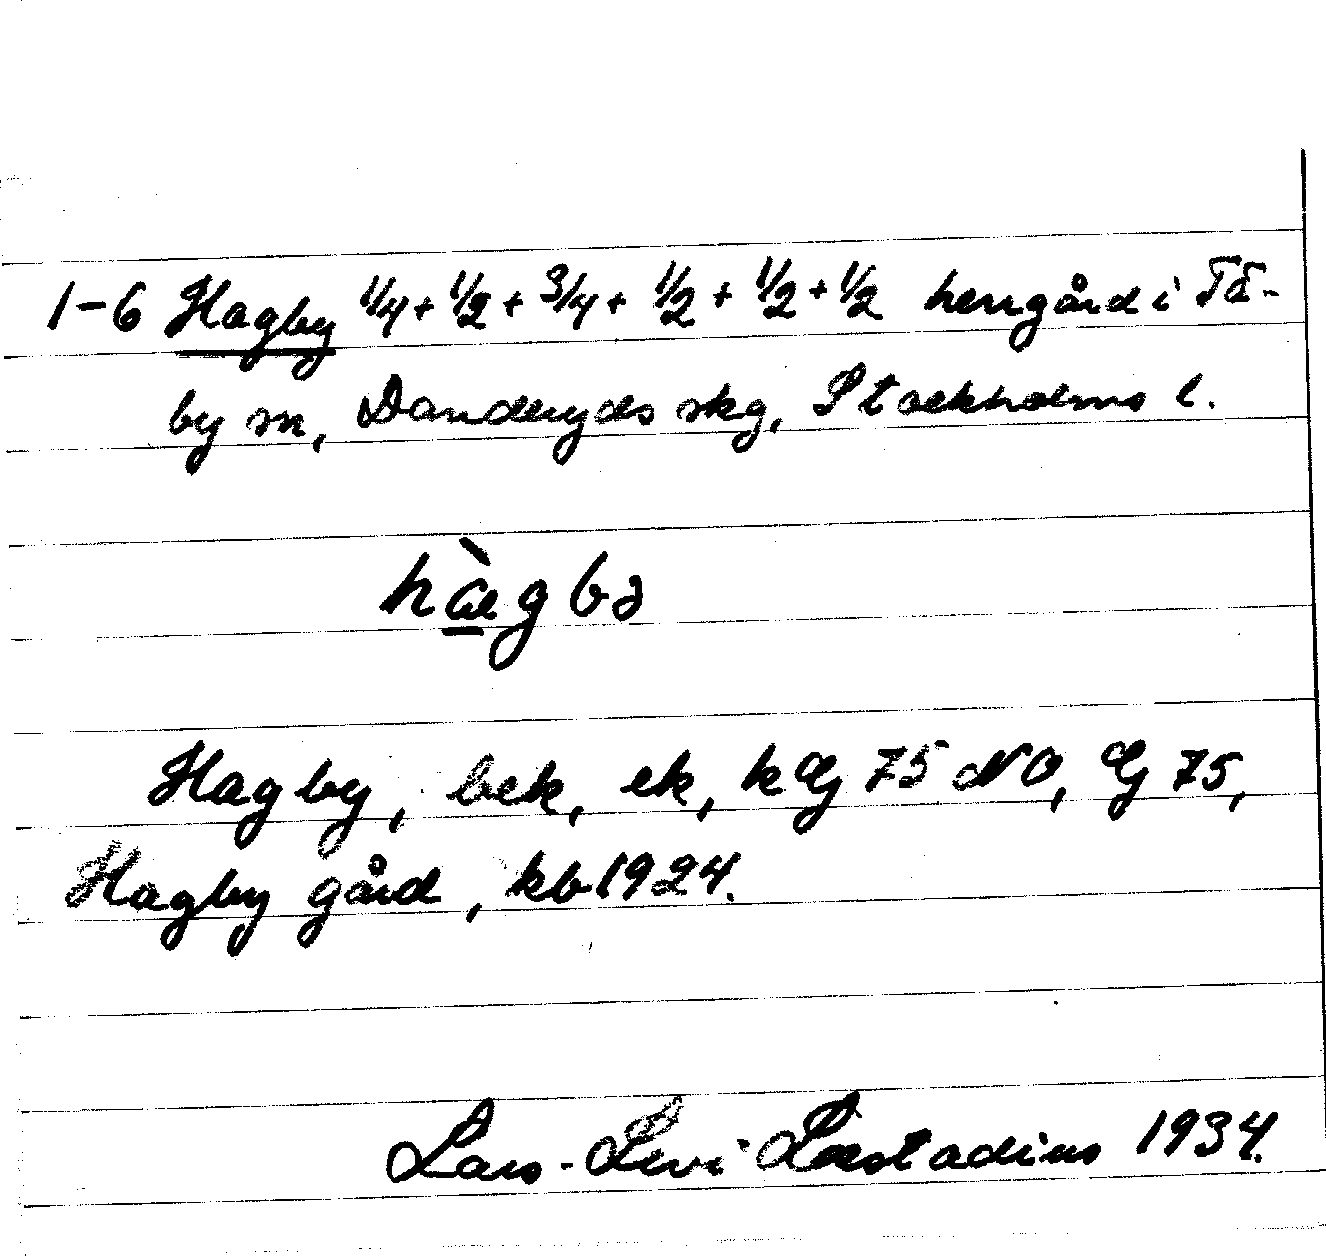 1-6 Hagby 1/4 + 1/2 + 3/4 + 1/2 + 1/2 + 1/2 herrgård i Tä-
by sn, Danderyds skg, Stockholms l.
hæ̀gbə
Hagby, bek, ek, k G 75 NO, G 75,
Hagby gård, kb 1924.
Lars-Levi Læstadius 1934.